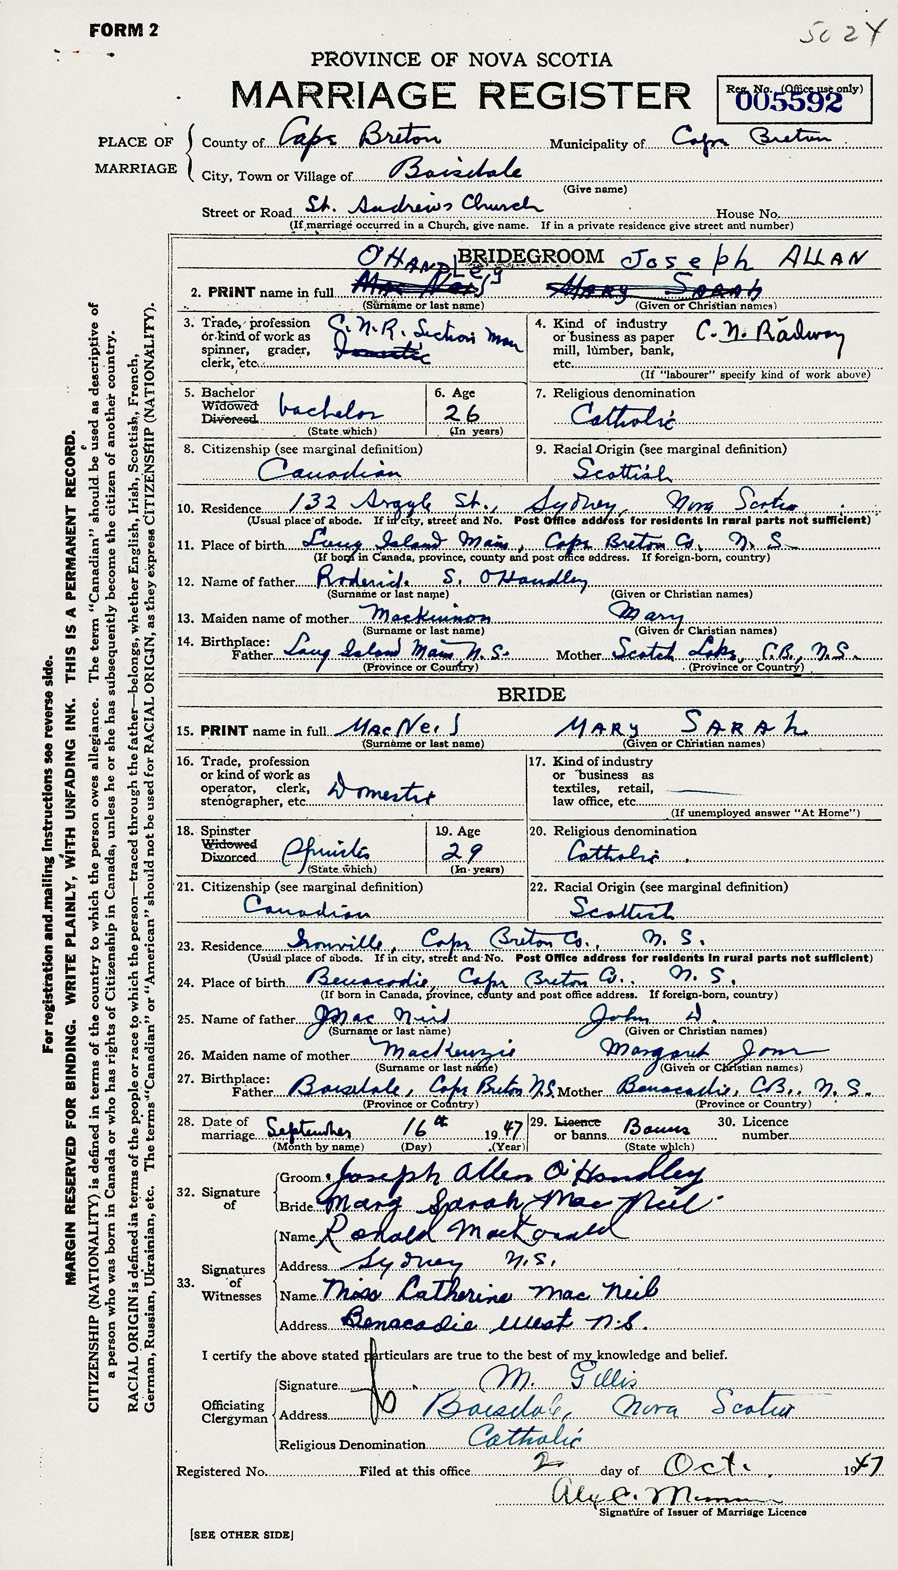 FORM 2
5024
PROVINCE OF NOVA SCOTIA
MARRIAGE REGISTER
Reg. No. (Office use only)
005592
PLACE OF MARRIAGE
County of Cape Breton Municipality of Cape Breton
City, Town or Village of Boisdale
(Give name)
Street or Road St. Andrews Church House No.
(If marriage occurred in a Church, give name. If in a private residence give street and number)
BRIDEGROOM
O'HANDLEY Joseph ALLAN
2. PRINT name in full MacNeil MARY SARAH
(Surname or last name) (Given or Christian names)
3. Trade, profession or kind of work as spinner, grader, clerk, etc. C.N.R. Section Man Domestic
4. Kind of industry or business as paper mill, lumber, bank, etc. C.N. Railway
(If "labourer" specify kind of work above)
5. Bachelor Widowed Divorced bachelor
(State which)
6. Age 26
(In years)
7. Religious denomination
Catholic
8. Citizenship (see marginal definition)
Canadian
9. Racial Origin (see marginal definition)
Scottish
10. Residence 132 Argyle St., Sydney, Nova Scotia
(Usual place of abode. If in city, street and No. Post Office address for residents in rural parts not sufficient)
11. Place of birth Long Island Main, Cape Breton Co. N.S.
(If born in Canada, province, county and post office address. If foreign-born, country)
12. Name of father Roderick S. O'Handley
(Surname or last name) (Given or Christian names)
13. Maiden name of mother MacKinnon Mary
(Surname or last name) (Given or Christian names)
14. Birthplace:
Father Long Island Main N.S. Mother Scotch Lake, C.B., N.S.
(Province or Country) (Province or Country)
BRIDE
15. PRINT name in full MacNeil MARY SARAh
(Surname or last name) (Given or Christian names)
16. Trade, profession or kind of work as operator, clerk, stenographer, etc. Domestic
17. Kind of industry or business as textiles, retail, law office, etc.
(If unemployed answer "At Home")
18. Spinster Widowed Divorced Spinster
(State which)
19. Age 29
(In years)
20. Religious denomination
Catholic
21. Citizenship (see marginal definition)
Canadian
22. Racial Origin (see marginal definition)
Scottish
23. Residence Ironville, Cape Breton Co., N.S.
(Usual place of abode. If in city, street and No. Post Office address for residents in rural parts not sufficient)
24. Place of birth Benacadie, Cape Breton Co. N.S.
(If born in Canada, province, county and post office address. If foreign-born, country)
25. Name of father MacNeil John D.
(Surname or last name) (Given or Christian names)
26. Maiden name of mother MacKenzie Margaret Jane
(Surname or last name) (Given or Christian names)
27. Birthplace:
Father Boisdale, Cape Breton N.S. Mother Benacadie, C.B., N.S.
(Province or Country) (Province or Country)
28. Date of marriage September 16th 1947
(Month by name) (Day) (Year)
29. Licence or banns Banns
(State which)
30. Licence number
32. Signature of
Groom Joseph Allen O'Handley
Bride Mary Sarah MacNeil
33. Signatures of Witnesses
Name Ronald MacDonald
Address Sydney N.S.
Name Miss Catherine MacNeil
Address Benacadie West N.S.
I certify the above stated particulars are true to the best of my knowledge and belief.
Officiating Clergyman
Signature M. Gillis
Address Boisdale, Nova Scotia
Religious Denomination Catholic
Registered No. Filed at this office 2 day of Oct. 1947
Signature of Issuer of Marriage Licence
[SEE OTHER SIDE]
For registration and mailing instructions see reverse side.
MARGIN RESERVED FOR BINDING. WRITE PLAINLY, WITH UNFADING INK. THIS IS A PERMANENT RECORD.
CITIZENSHIP (NATIONALITY) is defined in terms of the country to which the person owes allegiance. The term "Canadian" should be used as descriptive of
a person who was born in Canada or who has rights of Citizenship in Canada, unless he or she has subsequently become the citizen of another country.
RACIAL ORIGIN is defined in terms of the people or race to which the person—traced through the father—belongs, whether English, Irish, Scottish, French,
German, Russian, Ukrainian, etc. The terms "Canadian" or "American" should not be used for RACIAL ORIGIN, as they express CITIZENSHIP (NATIONALITY).